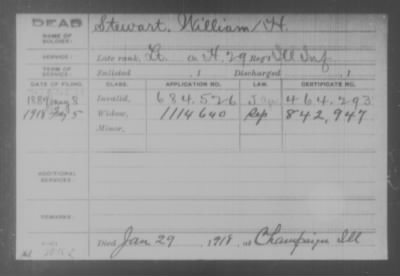 DEAD
NAME OF SOLDIER: Stewart, William H.
SERVICE: Late rank, Lt. Co. H, 29 Reg't Ill Inf.
TERM OF SERVICE: Enlisted , 1 Discharged , 1
DATE OF FILING. CLASS. APPLICATION NO. LAW. CERTIFICATE NO.
1889 8 Invalid, 684.526 464.293
1918 5 Widow, 1114640 842,947
Minor,
ADDITIONAL SERVICES:
REMARKS:
Died Jan 29 , 1918, at Champaign Ill